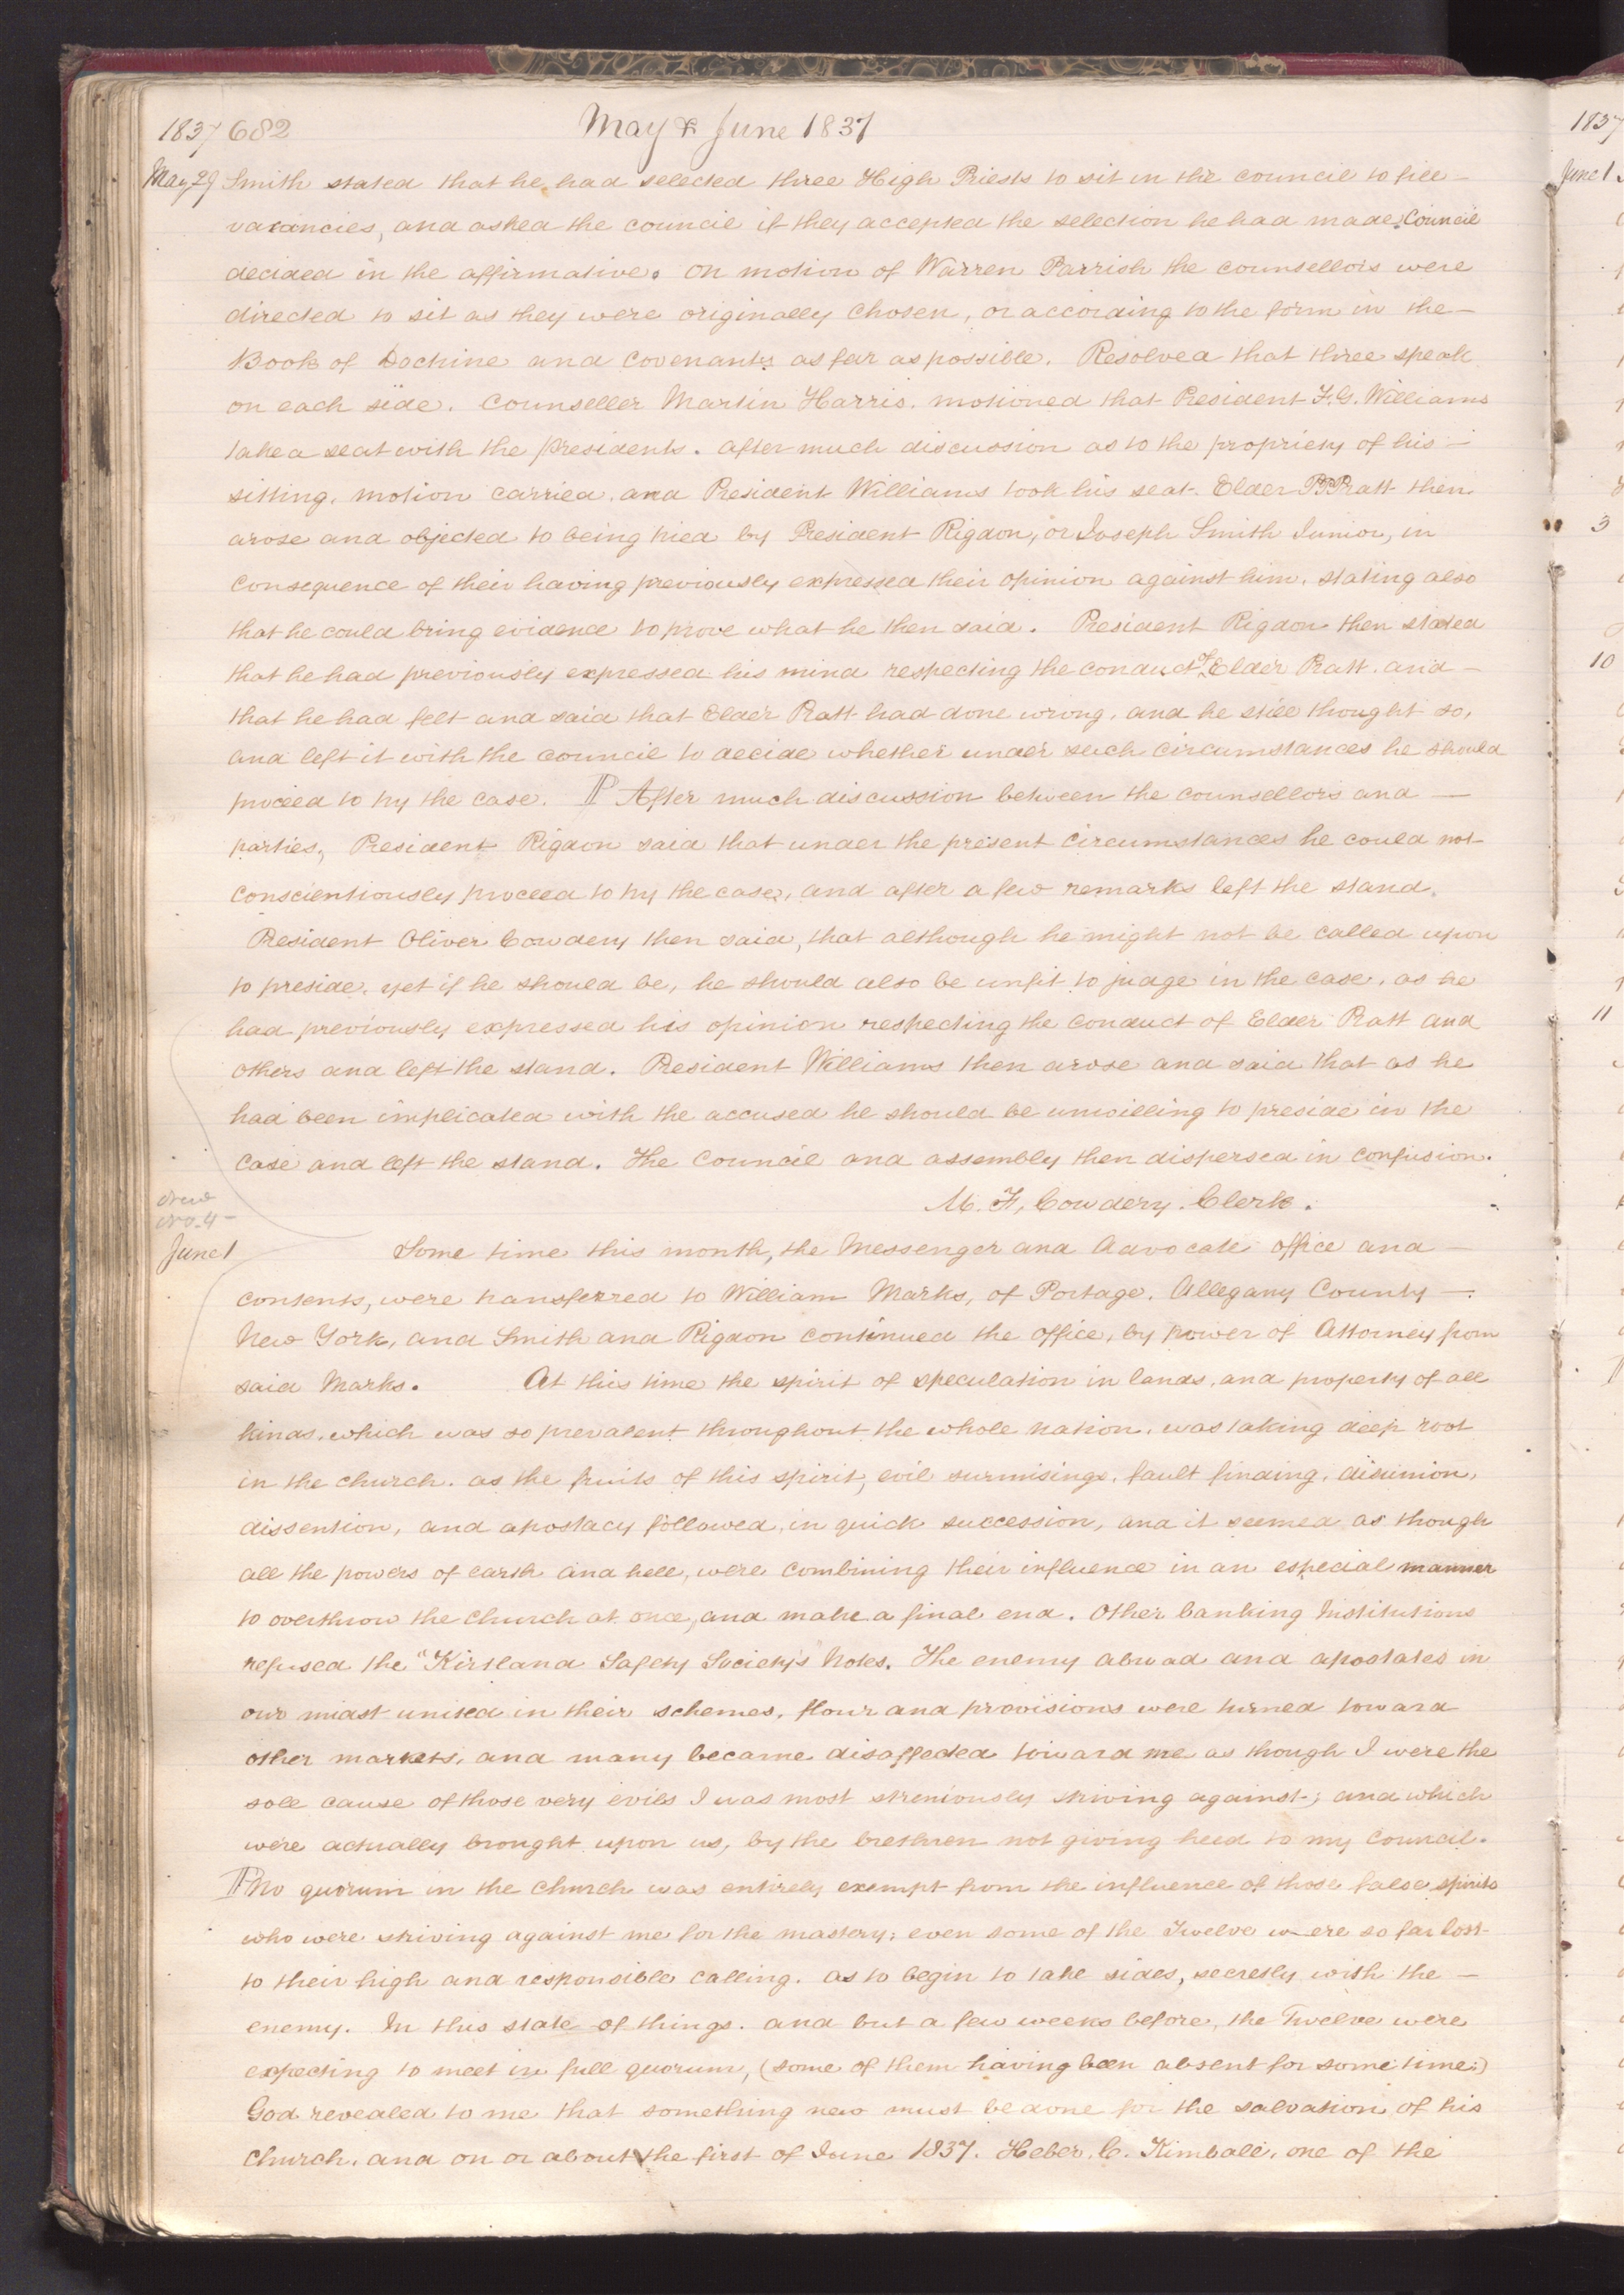 1837 682 May & June 1837
May 29 Smith stated that he had selected three High Priests to sit in the council to fill—
vacancies, and asked the council if they accepted the selection he had made; Council
decided in the affirmative. On motion of Warren Parrish the counsellors were
directed to sit as they were originally chosen, or according to the form in the—
Book of Doctrine and Covenants as far as possible. Resolved that three speak
on each side. Counseller Martin Harris, motioned that President F. G. Williams
take a seat with the presidents. after much discussion as to the propriety of his—
sitting, motion carried, and President Williams took his seat. Elder P P Pratt then
arose and objected to being tried by President Rigdon, or Joseph Smith Junior, in
consequence of their having previously expressed their opinion against him, stating also
that he could bring evidence to prove what he then said. President Rigdon then stated
that he had previously expressed his mind respecting the conduct of Elder Pratt and—
that he had felt and said that Elder Pratt had done wrong, and he still thought so,
and left it with the council to decide whether under such circumstances he should
proceed to try the case. ¶ After much discussion between the counsellors and—
parties, President Rigdon said that under the present circumstances he could not
conscientiously proceed to try the case, and after a few remarks left the stand.
President Oliver Cowdery then said, that although he might not be called upon
to preside, yet if he should be, he should also be unfit to judge in the case, as he
had previously expressed his opinion respecting the conduct of Elder Pratt and
others and left the stand. President Williams then arose and said that as he
had been implicated with the accused he should be unwilling to preside in the
case and left the stand. The Council and assembly then dispersed in confusion.
M. F. Cowdery. Clerk.
New
No. 4—
June 1 Some time this month, the Messenger and Advocate office and—
contents, were transferred to William Marks, of Portage, Allegany County—
New York, and Smith and Rigdon continued the office, by power of Attorney from
said Marks. At this time the spirit of speculation in lands, and property of all
kinds, which was so prevalent throughout the whole nation, was taking deep root
in the church. as the fruits of this spirit, evil surmisings, fault finding, disunion,
dissention, and apostacy followed in quick succession, and it seemed as though
all the powers of earth and hell, were combining their influence in an especial manner
to overthrow the church at once, and make a final end. Other banking Institutions
refused the "Kirtland Safety Society's" Notes. The enemy abroad and apostates in
our midst united in their schemes, flour and provisions were turned toward
other markets, and many became disaffected toward me as though I were the
sole cause of those very evils I was most streniously striving against; and which
were actually brought upon us, by the brethren not giving heed to my council.
¶ No quorum in the church was entirely exempt from the influence of those false spirits
who were striving against me for the mastery; even some of the Twelve were so far lost
to their high and responsible calling, as to begin to take sides, secretly with the—
enemy. In this state of things, and but a few weeks before, the Twelve were
expecting to meet in full quorum, (some of them having been absent for some time;)
God revealed to me that something new must be done for the salvation of his
church. and on or about the first of June 1837. Heber, C. Kimball, one of the
1837
June 1
3
10
11